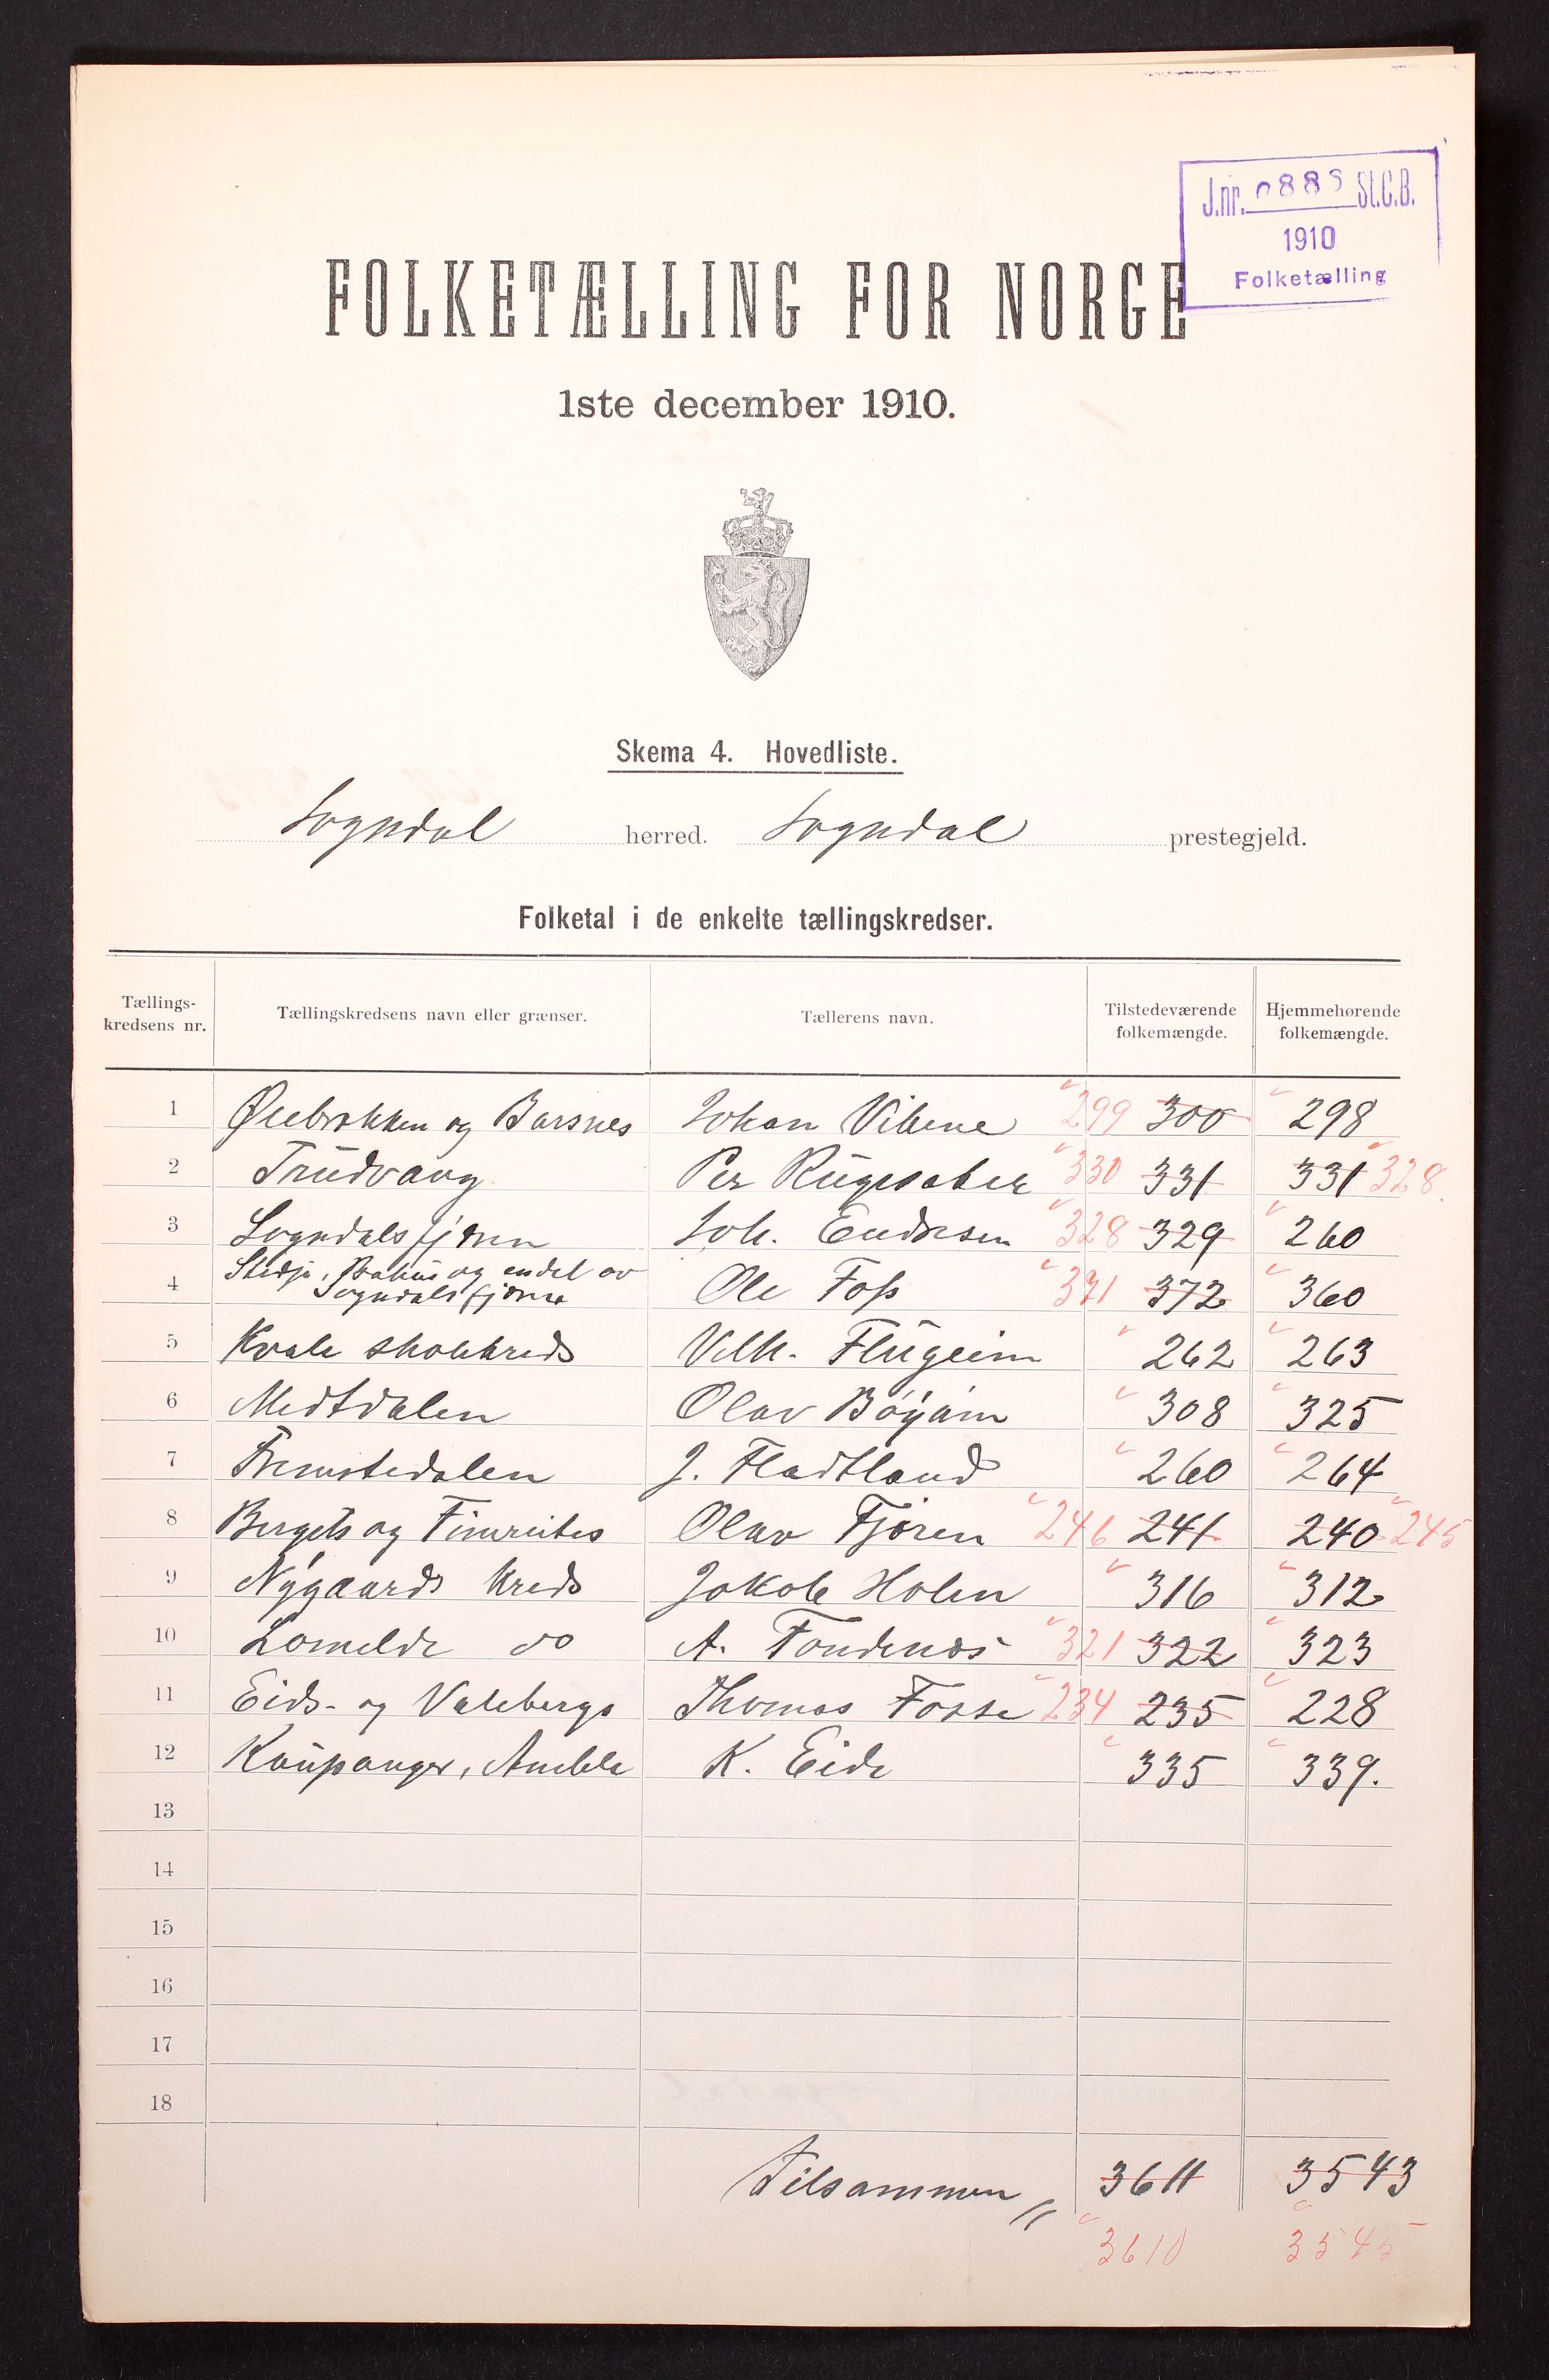 J.nr. 0885 St.C.B.
1910
Folketælling
FOLKETÆLLING FOR NORGE
1ste december 1910.
Skema 4. Hovedliste.
Sogndal herred. Sogndal prestegjeld.
Folketal i de enkelte tællingskredser.
Tællings-kredsens nr. Tællingskredsens navn eller grænser. Tællerens navn. Tilstedeværende folkemængde. Hjemmehørende folkemængde.
1 og Barsnes Johan Vibene 299 300 298
2 Trudvang Per 330 331 331 328
3 Sogndalsfjøren Joh. Endresen 328 329 260
4 Stedje, og endel av Sogndalsfjøren Ole Foss 371 372 360
5 Kvale skolekreds Vilh. Flugeim 262 263
6 Midtdalen Olav Bøyum 308 325
7 Fremstedalen J. Fladtland 260 264
8 Bergets og Fimreites Olav Fjøren 246 241 240 245
9 Nygaards kreds Jakob Holen 316 312
10 Lomelde do A. Tondenæs 321 322 323
11 Eids- og Valebergs Thomas Fosse 234 235 228
12 Kaupanger, Amble K. Eide 335 339.
13
14
15
16
17
18
Tilsammen 3611 3543
3610 3545